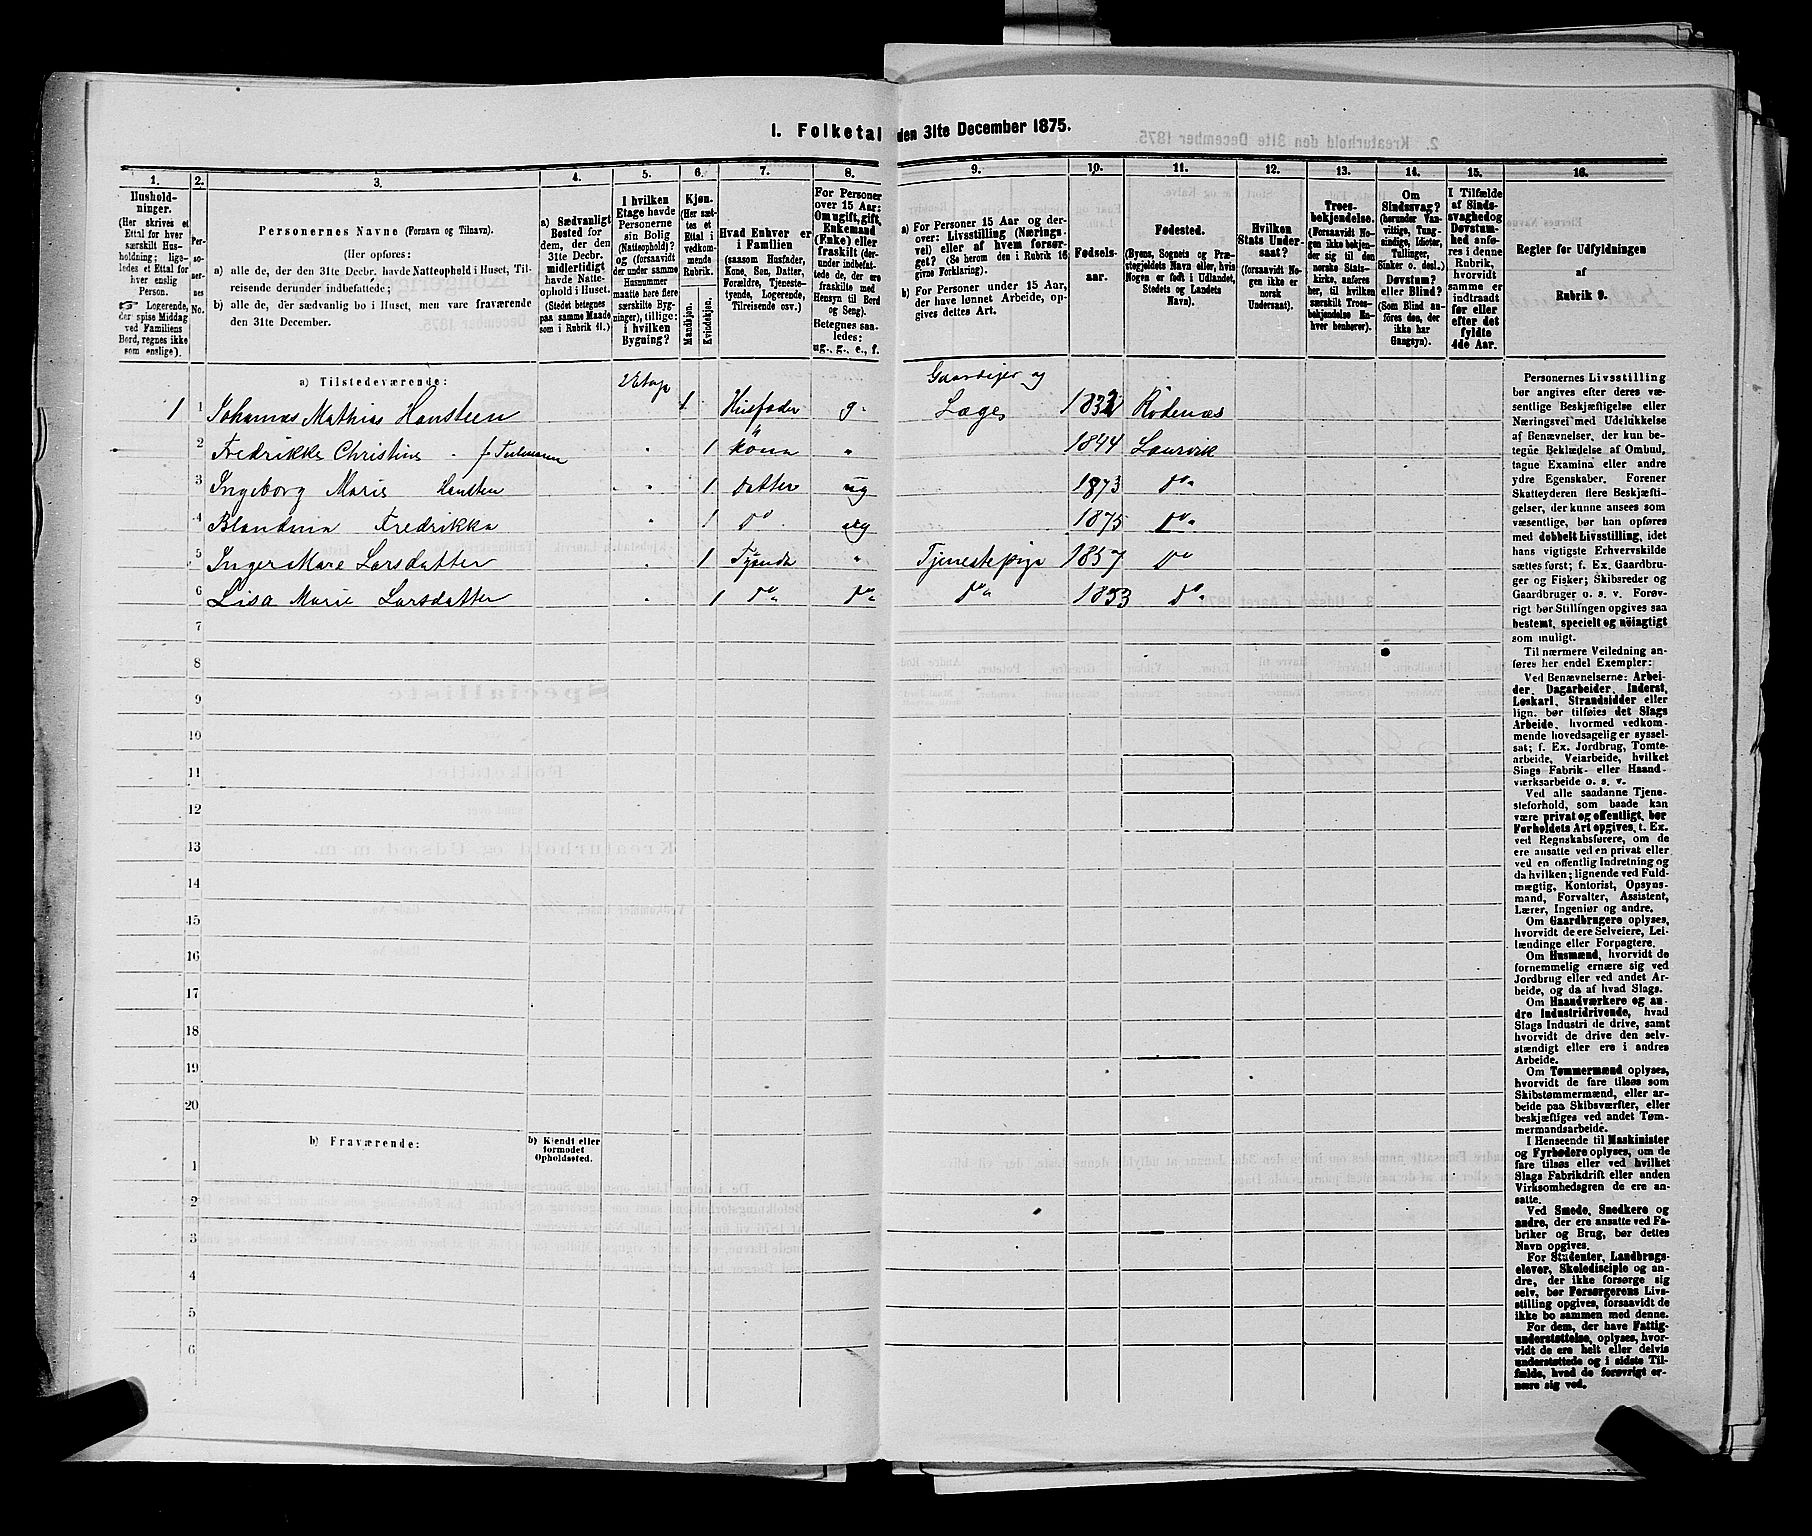 1. Folketal den 31te December 1875.
1. 2. 3. 4. 5. 6. 7. 8. 9. 10. 11. 12. 13. 14. 15. 16.
Hushold-
ninger.
(Her skrives et
Ettal for hver
særskilt Hus-
holdning; lige-
ledes et Ettal for
hver enslig
Person.
☞ Logerende,
der spise Middag
ved Familiens
Bord, regnes ikke
som enslige).
Per-
so-
ner-
nes
No.
Personernes Navne (Fornavn og Tilnavn).
(Her opføres:
a) alle de, der den 31te Decbr. havde Natteophold i Huset, Til-
reisende derunder indbefattede;
b) alle de, der sædvanlig bo i Huset, men vare fraværende
den 31te December.
a) Sædvanligt
Bosted for
dem, der den
31te Decbr.
midlertidigt
havde Natte-
ophold i Huset.
(Stedet betegnes
paa samme Maade
som i Rubrik 11.)
I hvilken
Etage havde
Personerne
sin Bolig
(Natteophold)?
og (forsaavidt
der under samme
Husnummer
maatte høre flere
særskilte Byg-
ninger), tillige:
i hvilken
Bygning?
Kjøn.
(Her sæt-
tes et
Ettal i
vedkom-
mende
Rubrik.
Mandkjøn.
Kvindekjøn.
Hvad Enhver er
i Familien
(saasom Husfader,
Kone, Søn, Datter,
Forældre, Tjeneste-
tyende, Logerende,
Tilreisende osv.)
For Personer
over 15 Aar:
Om ugift, gift,
Enkemand
(Enke) eller
fraskilt (der-
under indbefat-
tede de, der ere
fraskilte med
Hensyn til Bord
og Seng).
Betegnes saa-
ledes:
ug., g., e., f.
a) For Personer 15 Aar og der-
over: Livsstilling (Nærings-
vei) eller af hvem forsør-
get? (Se herom den i Rubrik 16
givne Forklaring).
b) For Personer under 15 Aar,
der have lønnet Arbeide, op-
gives dettes Art.
Fødsels-
aar.
Fødested.
(Byens, Sognets og Præ-
stegjeldets Navn eller, hvis
Nogen er født i Udlandet,
Stedets og Landets
Navn).
Hvilken
Stats Under-
saat?
(forsaavidt No-
gen ikke er
norsk
Undersaat).
Troes-
bekjendelse.
(Forsaavidt No-
gen ikke bekjen-
der sig til den
norske Stats-
kirke, anføres
her, til hvilken
særskilt Troes-
bekjendelse En-
hver henhører).
Om
Sindssvag?
(herunder Van-
vittige, Tung-
sindige, Idioter,
Tullinger,
Sinker o. desl.)
Døvstum?
eller Blind?
(Som Blind an-
føres den, der
ikke har
Gangsyn).
I Tilfælde
af Sinds-
svaghed og
Døvstum-
hed anfø-
res i denne
Rubrik,
hvorvidt
samme er
indtraadt
før eller
efter det
fyldte
4de Aar.
Regler før Udfyldningen
af
Rubrik 9.
a) Tilstedeværende:
2 Etage Gaardejer og
1 1 Johannes Mathias Hansteen 1 Husfader g. Læge 1832 Rødenæs
2 Fredrikke Christine 1 Kone " 1844 Laurvik
3 Ingeborg Marie Hansten " 1 Datter ug 1873 do
4 Blandina Fredrikka " 1 do ug 1875 do
5 Inger Mare Larsdatter " 1 Tyende " Tjenestepige 1857 do
6 Lisa Marie Larsdatter " 1 do do do 1853 do
7
8
9
10
11
12
13
14
15
16
17
18
19
20
b) Fraværende:
b) Kjendt eller
formodet
Opholdssted.
1
2
3
4
5
6
Personernes Livsstilling
bør angives efter deres væ-
sentlige Beskjæftigelse eller
Næringsvei med Udelukkelse
af Benævnelser, der kun be-
tegne Beklædelse af Ombud,
tagne Examina eller andre
ydre Egenskaber. Forener
Skatteyderen flere Beskjæfti-
gelser, der kunne ansees som
væsentlige, bør han opføres
med dobbelt Livsstilling, idet
hans vigtigste Erhvervskilde
sættes først; f. Ex. Gaardbru-
ger og Fisker; Skibsreder og
Gaardbruger o. s. v. Forøv-
rigt bør Stillingen opgives saa
bestemt, specielt og nöiagtigt
som muligt.
Til nærmere Veiledning an-
føres her endel Exempler:
Ved Benævnelserne: Arbei-
der, Dagarbeider, Inderst,
Løskarl, Strandsidder eller
lign. bør tilføies det Slags
Arbeide, hvormed vedkom-
mende hovedsagelig er syssel-
sat; f. Ex. Jordbrug, Tomte-
arbeide, Veiarbeide, hvilket
Slags Fabrik- eller Haand-
værksarbeide o. s. v.
Ved alle saadanne Tjene-
steforhold, som baade kan
være privat og offentligt, bør
Forholdets Art opgives, t. Ex.
ved Regnskabsførere, om de
ere ansatte ved en privat eller
ved en offentlig Indretning og
da hvilken; lignende ved Fuld-
mægtig, Kontorist, Opsyns-
mand, Forvalter, Assistent,
Lærer, Ingeniør og andre.
Om Gaardbrugere oplyses,
hvorvidt de ere Selveiere, Lei-
lændinge eller Forpagtere.
Om Husmænd, hvorvidt de
fornemmelig ernære sig ved
Jordbrug eller ved andet Ar-
beide, og da af hvad Slags.
Om Haandværkere og an-
dre Industridrivende, hvad
Slags Industri de drive, samt
hvorvidt de drive den selv-
stændigt eller ere i andres
Arbeide.
Om Tømmermænd oplyses,
hvorvidt de fare tilsøs som
Skibstømmermænd, eller ar-
beide paa Skibsværfter, eller
beskjæftiges ved andet Tøm-
mermandsarbeide.
I Henseende til Maskinister
og Fyrbødere oplyses, om de
fare tilsøs eller ved hvilket
Slags Fabrikdrift eller anden
Virksomhedsgren de ere an-
satte.
Ved Smede, Snedkere og
andre, der ere ansatte ved Fa-
briker og Brug, bør dettes
Navn opgives.
For Studenter, Landbrugs-
elever, Skoledisciple og an-
dre, der ikke forsørge sig
selv, bør Forsørgerens Livs-
stilling opgives, forsaavidt de
ikke bo sammen med denne.
For dem, der have Fattig-
understøttelse, oplyses, hvor-
vidt de ere helt eller delvis
understøttede og i sidste Til-
fælde, hvad de forøvrigt er-
nære sig ved.